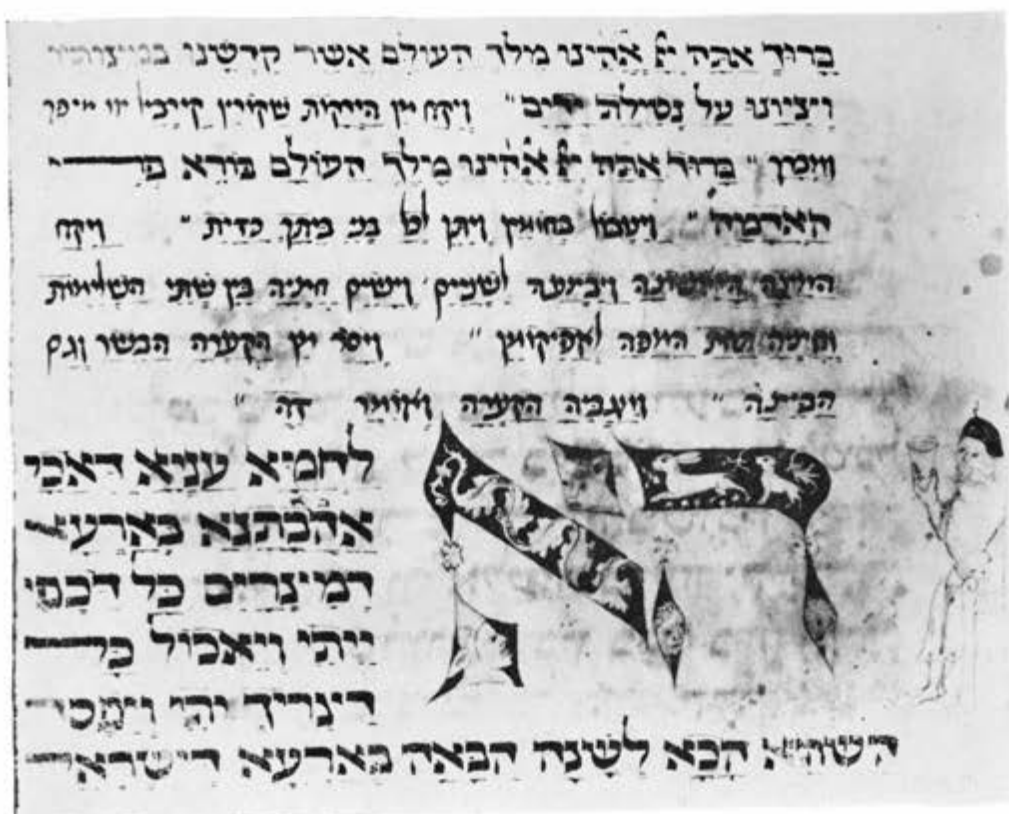 בָּרוּךְ אַתָּה יְיָ אֱלֹהֵינוּ מֶלֶךְ הָעוֹלָם אֲשֶׁר קִדְּשָׁנוּ בְּמִצְוֹתָיו
וְצִוָּנוּ עַל נְטִילַת יָדַיִם" ויקח מן הירקות
בָּרוּךְ אַתָּה יְיָ אֱלֹהֵינוּ מֶלֶךְ הָעוֹלָם בּוֹרֵא פְּרִי
הָאֲדָמָה" ויטבול בחומץ ויתן לכל בני ביתו כזית" ויקח
לשנים וישים חציה בין שתי השלימות
המפה לאפיקומן" ויסר מן הקערה הבשר וגם
הביצה" ויגביה הקערה ויאמר זה"
הָא
לַחְמָא עַנְיָא דַּאֲכָלוּ
אַבְהָתָנָא בְּאַרְעָא
דְמִצְרַיִם כָּל דִּכְפִין
יֵיתֵי וְיֵאכוֹל כָּל
דִּצְרִיךְ יֵיתֵי וְיִפְסַח
הָשַׁתָּא הָכָא לְשָׁנָה הַבָּאָה בְּאַרְעָא דְיִשְׂרָאֵל